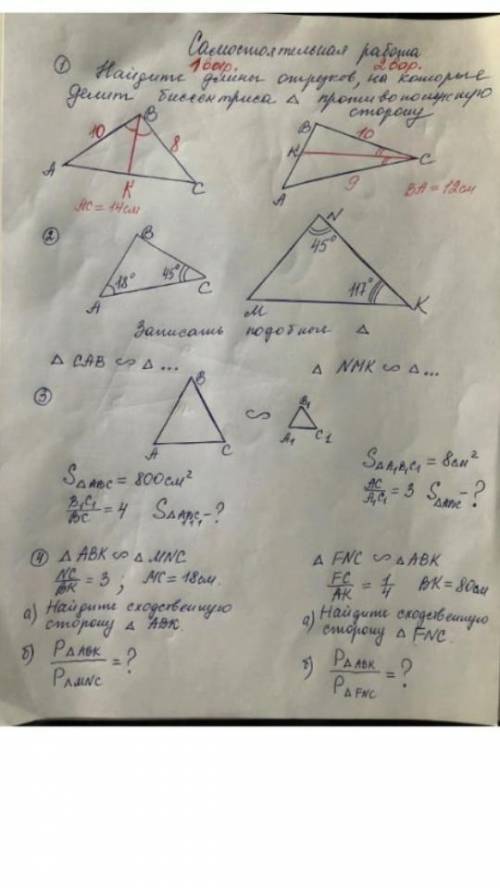 Самостоятельная работа
1 вар. 2 вар.
① Найдите длины отрезков, на которые
делит биссектриса △ противоположную
сторону
B
10
8
A
K
C
AC = 14см
B
10
K
C
A
9
BA = 12см
②
B
18°
45°
A
C
N
45°
117°
M
K
Записать подобные △
△ CAB ∽ △ ...
△ NMK ∽ △ ...
③
B
A
C
∽
B₁
A₁
C₁
S△ABC = 800см²
B₁C₁/BC = 4 S△A₁B₁C₁ - ?
S△A₁B₁C₁ = 8см²
AC/A₁C₁ = 3 S△ABC - ?
④ △ ABK ∽ △ MNC
NC/BK = 3 ; MC = 18см.
а) Найдите сходственную
сторону △ ABK.
б) P△ABK/P△MNC = ?
△ FNC ∽ △ ABK
FC/AK = 1/4 BK = 80см
а) Найдите сходственную
сторону △ FNC.
б) P△ABK/P△FNC = ?